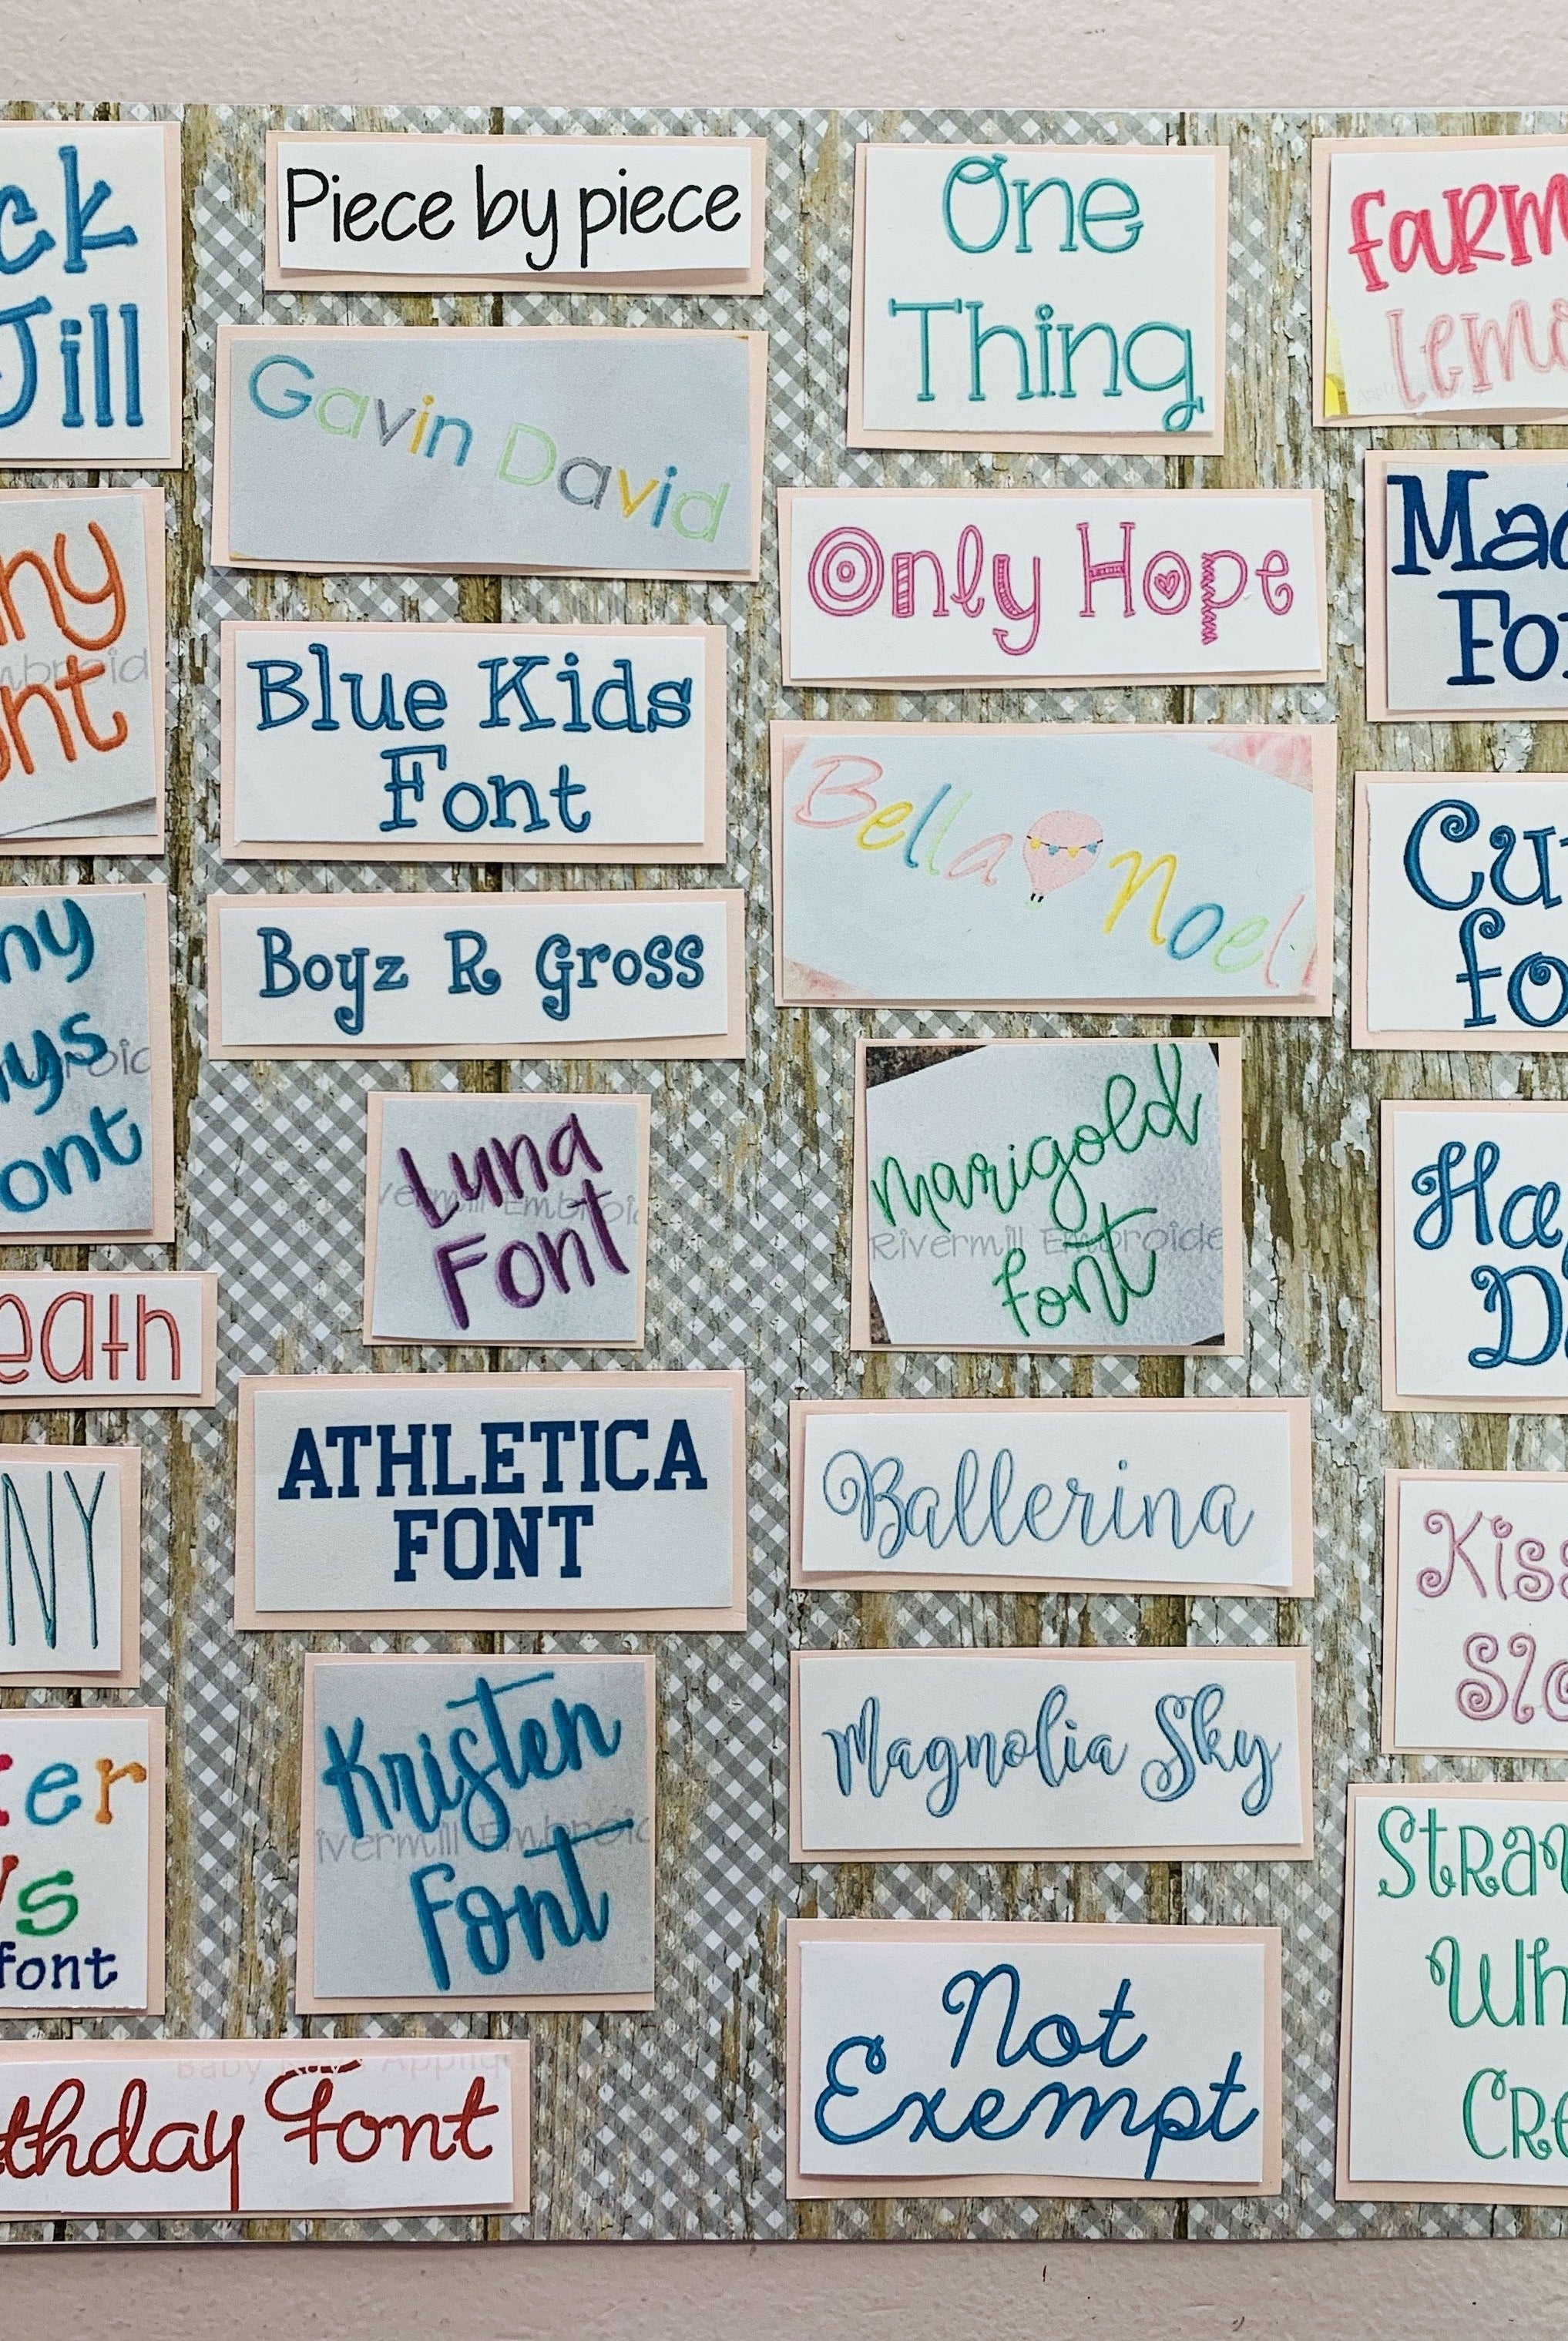 ck
Jill
hy
ont
ny
ys
ont
eath
NY
er
s
font
thday Font
Piece by piece
Gavin David
Blue Kids
Font
Boyz R Gross
Luna
Font
ATHLETICA
FONT
Kristen
Font
One
Thing
Only Hope
Bella Noel
Marigold
Rivermill Embroide
font
Ballerina
Magnolia Sky
Not
Exempt
farm
Lemo
Mad
Fon
Cu
fo
Ha
D
Kiss
Slo
Straw
Wh
Cre